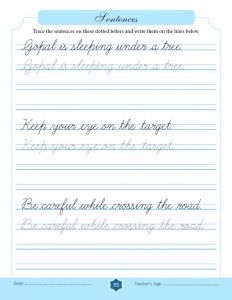 Sentences
Trace the sentences on these dotted letters and write them on the lines below.
Gopal is sleeping under a tree.
Gopal is sleeping under a tree.
Keep your eye on the target.
Keep your eye on the target.
Be careful while crossing the road.
Be careful while crossing the road.
Date
35
Teacher's Sign